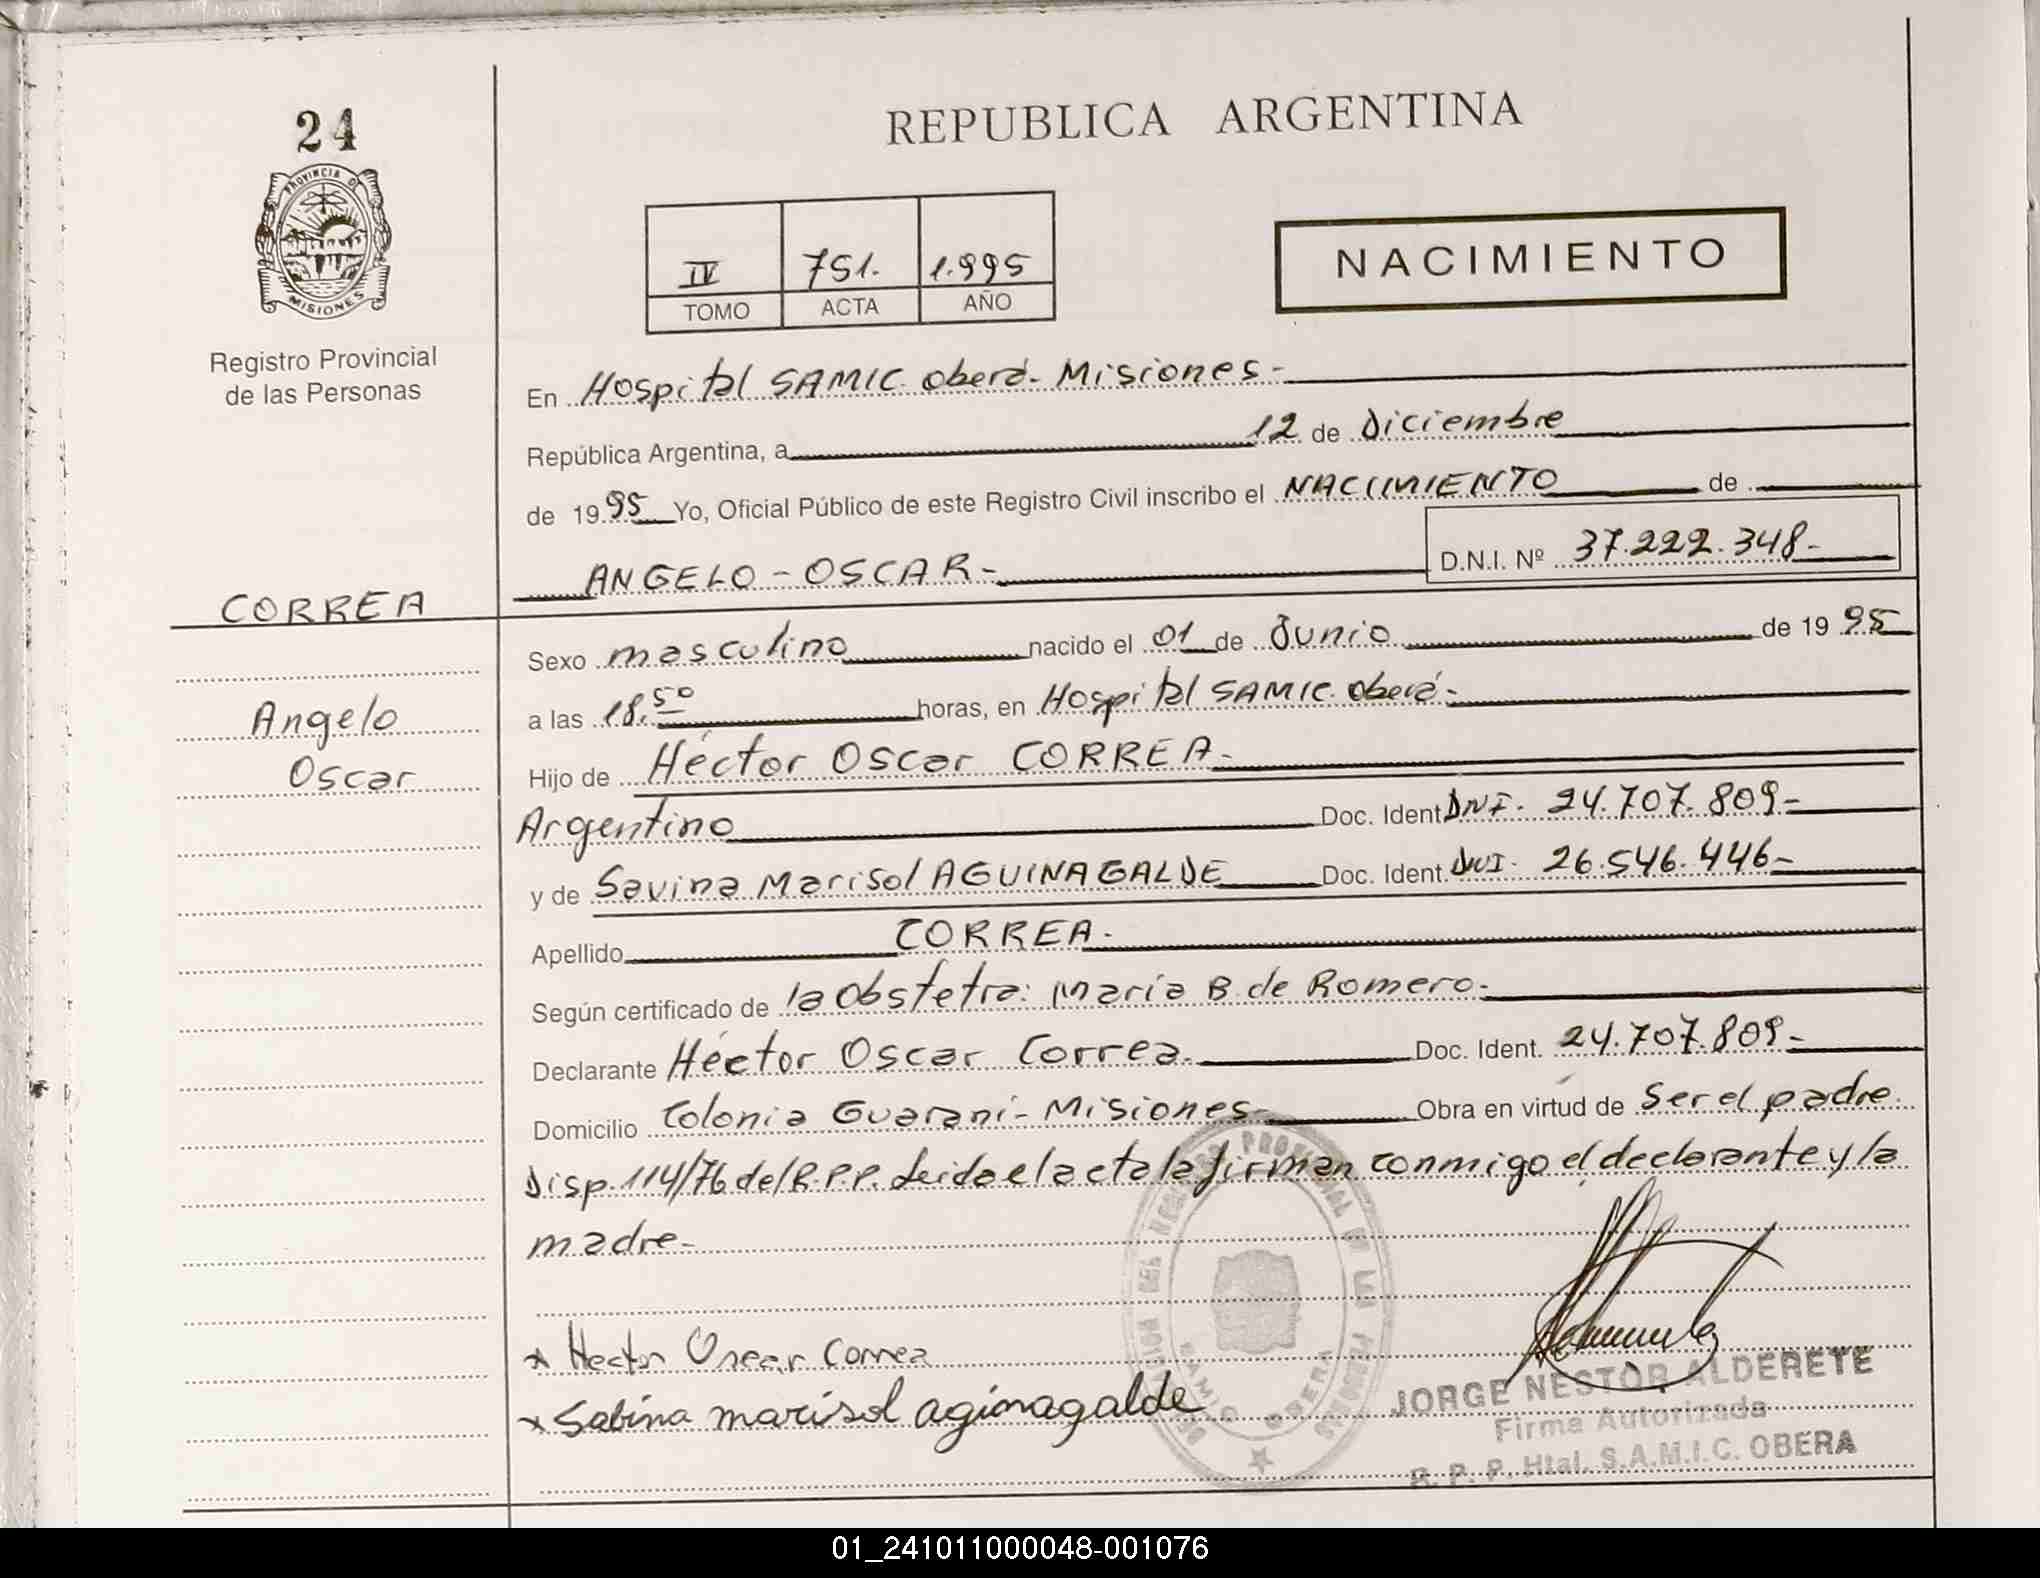 24
PROVINCIA DE
MISIONES
Registro Provincial
de las Personas
REPUBLICA ARGENTINA
IV 751. 1.995
TOMO ACTA AÑO
NACIMIENTO
En Hospital SAMIC. Oberá- Misiones-
República Argentina, a 12 de Diciembre
de 1995 Yo, Oficial Público de este Registro Civil inscribo el NACIMIENTO de
ANGELO - OSCAR- D.N.I. Nº 37.222.348-
CORREA
Angelo
Oscar
Sexo masculino nacido el 01 de Junio de 1995
a las 18.50 horas, en Hospital SAMIC. Oberá-
Hijo de Héctor Oscar CORREA-
Argentino Doc. Ident DNI. 24.707.809-
y de Savina Marisol AGUINAGALDE Doc. Ident. DNI. 26.546.446-
Apellido CORREA.
Según certificado de la Obstetra: María B. de Romero-
Declarante Héctor Oscar Correa. Doc. Ident. 24.707.809-
Domicilio Colonia Guaraní- Misiones- Obra en virtud de Ser el padre.
Disp. 114/76 del R.P.P. Leida el acta la firman conmigo el declarante y la
madre-
Hector Oscar Correa
Sabina marisol aginagalde
JORGE NESTOR ALDERETE
Firma Autorizada
R. P. P. Htal. S.A.M.I.C. OBERA
01_241011000048-001076